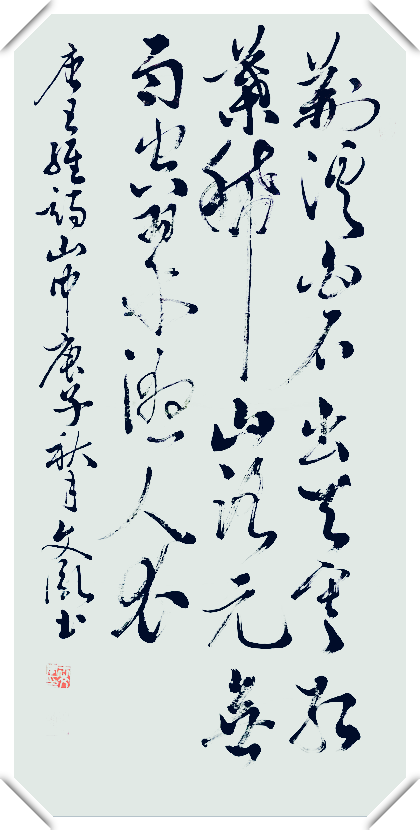 荆溪白石出天寒红
葉稀山路元無
雨空翠濕人衣
唐王維詩山中庚子秋月文书